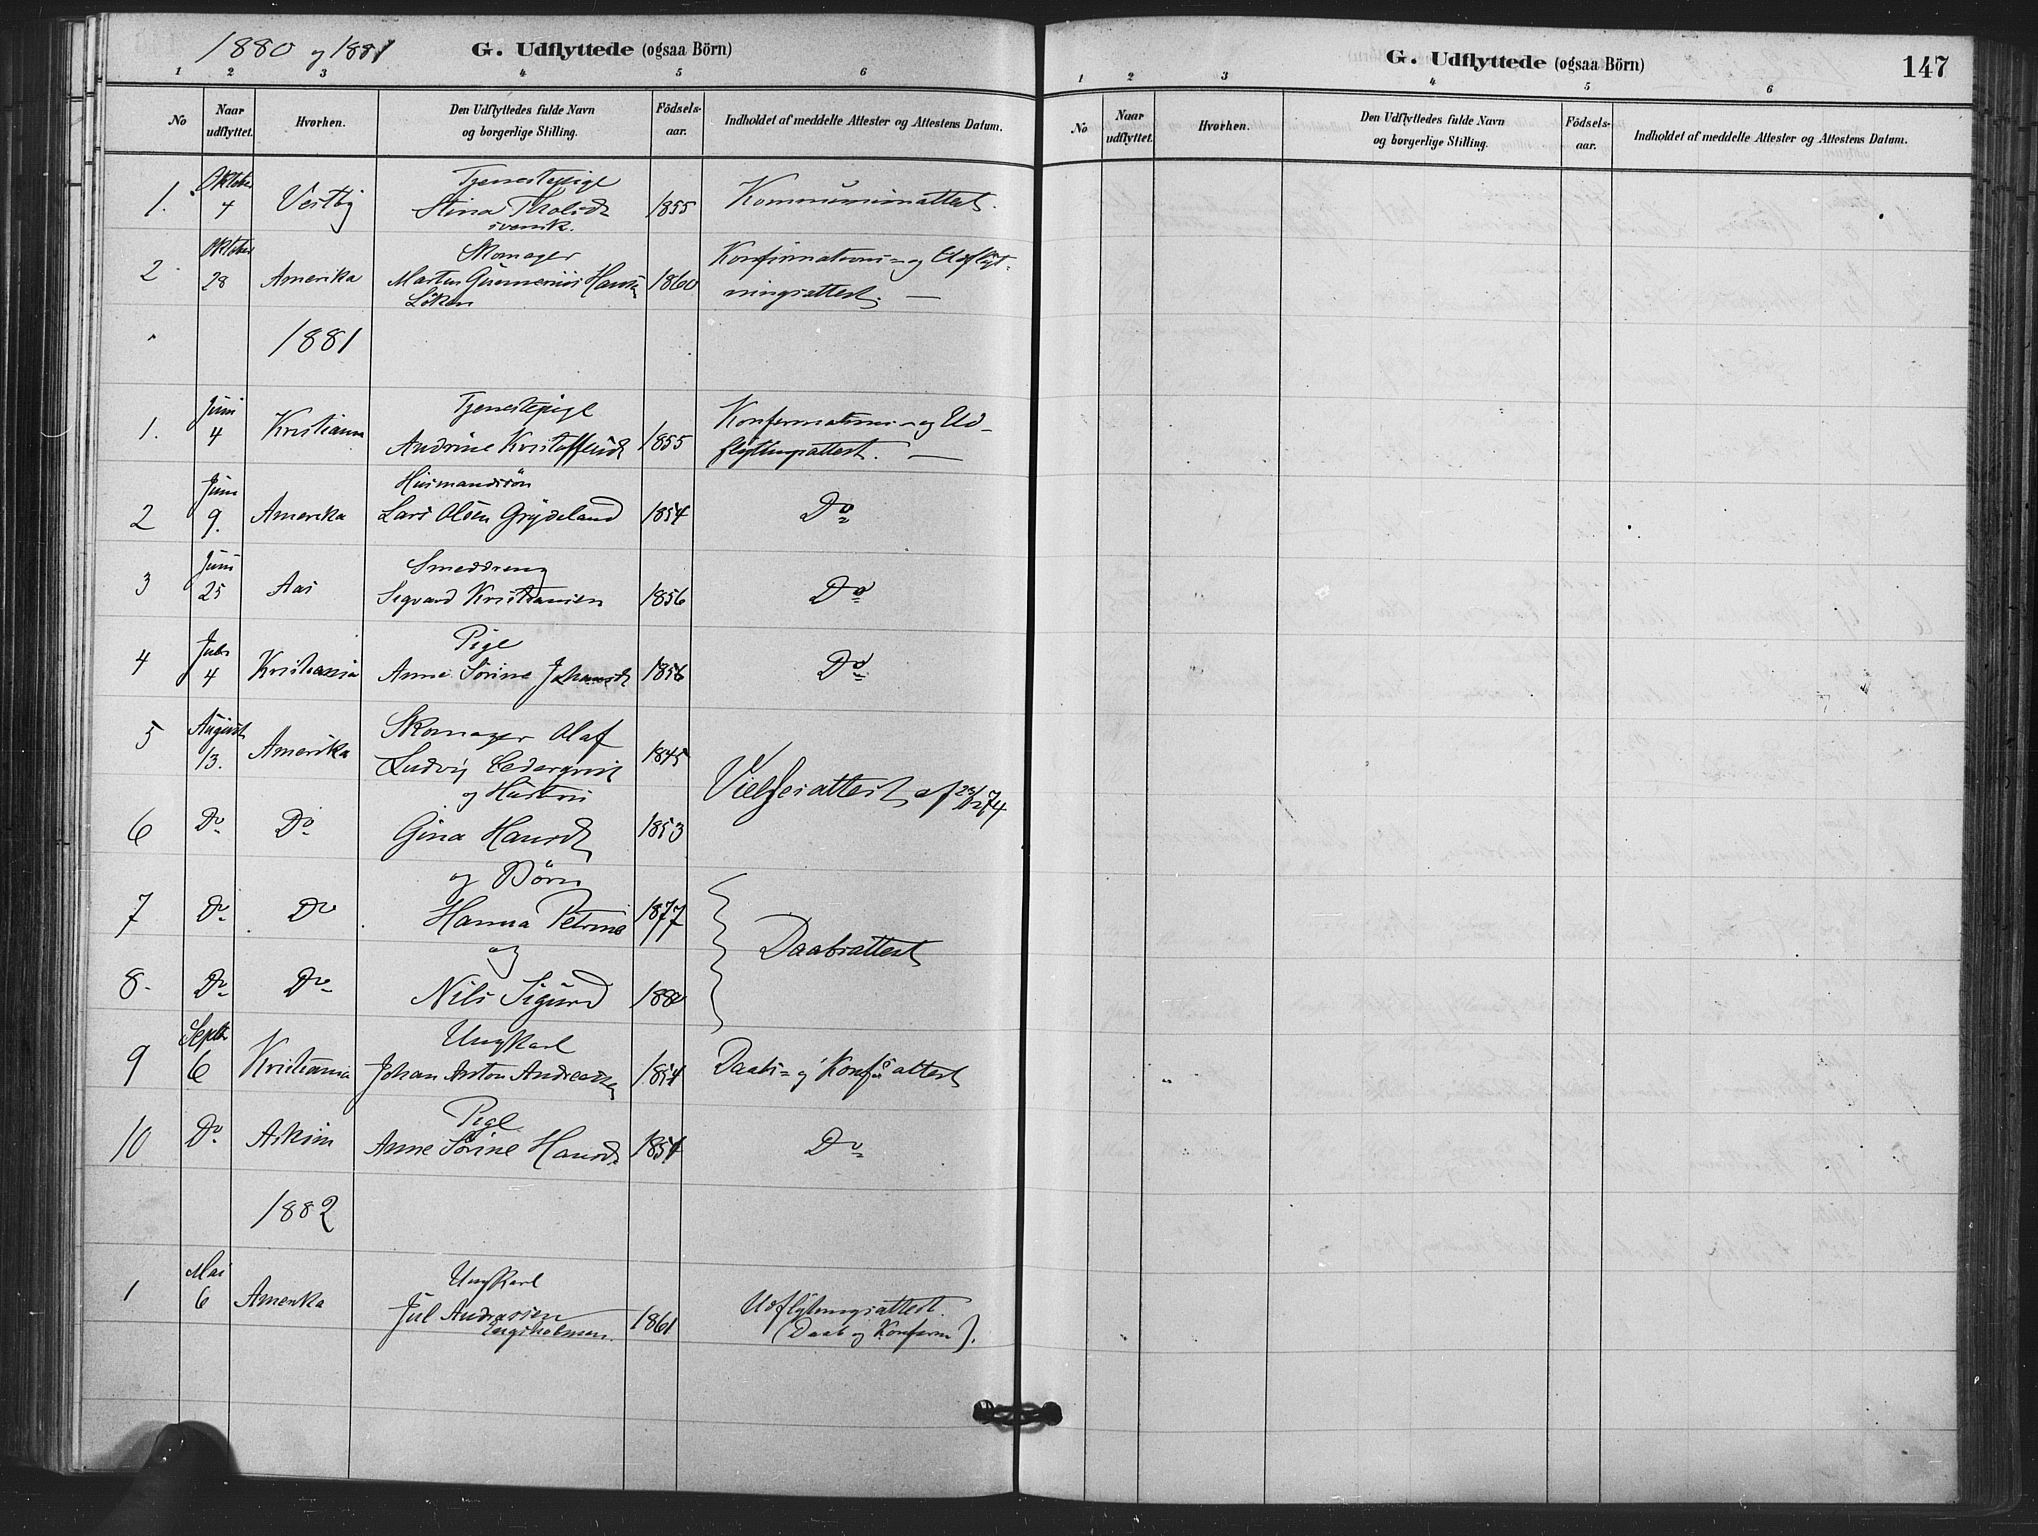 1880 og 1881
G. Udflyttede (ogsaa Börn)
1 2 3 4 5 6
No
Naar udflyttet.
Hvorhen.
Den Udflyttedes fulde Navn og borgerlige Stilling.
Födsels-aar.
Indholdet af meddelte Attester og Attestens Datum.
1. Oktober 4 Vestby Tjenestepige Stina svensk. 1855 Kommunionattest.
2 Oktober 28 Amerika Skomager Martin Hansen Löken 1860 Konfirmations- og Udflytningsattest. —
1881
1. Juni 4 Kristiania Tjenestepige Andrine Kristoffersdt 1855 Konfirmations- og Udflytningsattest. —
2 Juni 9. Amerika Husmandssön Lars Olsen Grydeland 1854 Do
3 Juni 25 Aas Smeddreng Sigvard Kristiansen 1856 Do
4 Juli 4 Kristiania Pige Anne Sörine Johansdt 1856 Do
5 August 13. Amerika Skomager Olaf Ludvig Cederqvist og Hustru 1845 Vielsesattest af 74
6 Do Do Gina Hansdt og Börn 1853
7 Do Do Hanna Petrine og 1877 Daabsattest
8. Do Do Nils Sigurd 1880
9 Septbr 6 Kristiania Ungkarl Johan Anton Andreassen 1854 Daabs- og Konfs attest
10 Do Askim Pige Anne Sörine Hansdt 1854 Do
1882
1 Mai 6 Amerika Ungkarl Jul Andreasen Engsholmen. 1861 Udflytningsattest. (Daab og Konfirm).
G. Udflyttede (ogsaa Börn)
147
1 2 3 4 5 6
No
Naar udflyttet.
Hvorhen.
Den Udflyttedes fulde Navn og borgerlige Stilling.
Födsels-aar.
Indholdet af meddelte Attester og Attestens Datum.